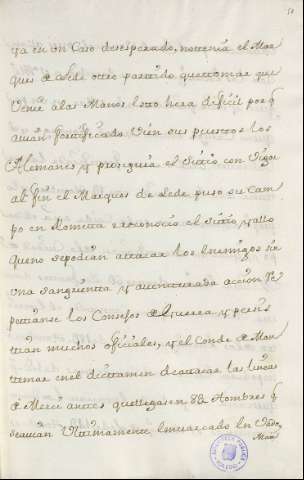 ya en un Caso desesperado, no tenia el Mar
ques de Lede otro partido que tomar que
Venir a las Manos. Esto hera dificil por q
avian fortificado Vien sus puestos los
Alemanes, y proseguia el Sitio con Vigor
al fin el Marques de Lede puso su Cam
po en Rometta reconocio el Sitio, y allo
que no se podian attacar los enemigos sin
una sangrienta, y aventurada accion. Re
petianse los Consejos de Guerra, y persis
tian muchos oficiales, y el Conde de Mon
temar en el dictamen de attacar las lineas
de Merci antes que llegasen 8@ Hombres q
se avian Ultimamente embarcado en Vado
Mar